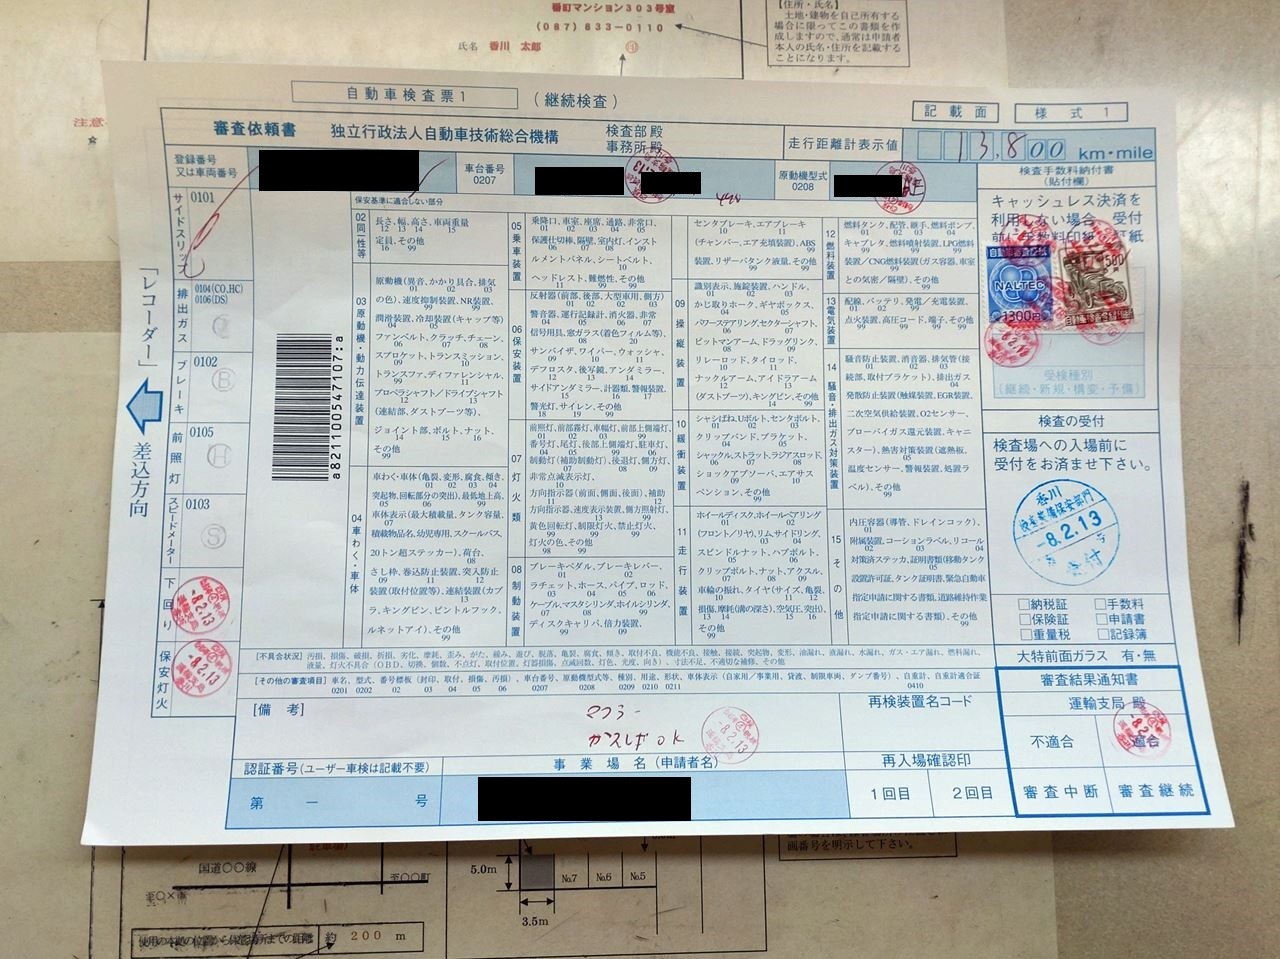 番町マンション303号室
(087) 833-0110
氏名 香川 太郎 ㊞
【住所・氏名】
土地・建物を自己所有する
場合に限ってこの書類を作
成しますので、通常は申請者
本人の氏名・住所を記載する
ことになります。
自動車検査票1
(継続検査)
記載面
様式1
審査依頼書 独立行政法人自動車技術総合機構
検査部 殿
事務所 殿
走行距離計表示値
13,800 km・mile
登録番号
又は車両番号
車台番号
0207
原動機型式
0208
検査手数料納付書
(貼付欄)
キャッシュレス決済を
利用しない場合、受付
自動車審査証紙
NALTEC
1300円
500
受検種別
(継続・新規・構変・予備)
検査の受付
検査場への入場前に
受付をお済ませ下さい。
香川
-8.2.13
受付
□納税証 □手数料
□保険証 □申請書
□重量税 □記録簿
大特前面ガラス 有・無
「レコーダー」
差込方向
サイドスリップ
0101
排出ガス
0104(CO,HC)
0106(DS)
ブレーキ
0102
Ⓑ
前照灯
0105
Ⓗ
スピードメーター
0103
Ⓢ
下回り
-8.2.13
保安灯火
-8.2.13
a82110054710 7:a
保安基準に適合しない部分
02 同一性等
長さ、幅、高さ、車両重量
定員、その他
03 原動機・動力伝達装置
原動機(異音、かかり具合、排気
の色)、速度抑制装置、NR装置、
潤滑装置、冷却装置(キャップ等)
ファンベルト、クラッチ、チェーン、
スプロケット、トランスミッション、
トランスファ、ディファレンシャル、
プロペラシャフト/ドライブシャフト
(連結部、ダストブーツ等)、
ジョイント部、ボルト、ナット、
その他
04 車わく・車体
車わく・車体(亀裂、変形、腐食、傾き、
突起物、回転部分の突出)、最低地上高、
車体表示(最大積載量、タンク容量、
積載物品名、幼児専用、スクールバス、
20トン超ステッカー)、荷台、
さし枠、巻込防止装置、突入防止
装置(取付位置等)、連結装置(カプ
ラ、キングピン、ピントルフック、
ルネットアイ)、その他
05 乗車装置
乗降口、車室、座席、通路、非常口、
保護仕切棒、隔壁、室内灯、インスト
ルメントパネル、シートベルト、
ヘッドレスト、難燃性、その他
06 保安装置
反射器(前部、後部、大型車用、側方)
警音器、運行記録計、消火器、非常
信号用具、窓ガラス(着色フィルム等)、
サンバイザ、ワイパー、ウォッシャ、
デフロスタ、後写鏡、アンダミラー、
サイドアンダミラー、計器類、警報装置、
警光灯、サイレン、その他
07 灯火類
前照灯、前部霧灯、車幅灯、前部上側端灯、
番号灯、尾灯、後部上側端灯、駐車灯、
制動灯(補助制動灯)、後退灯、側方灯、
非常点滅表示灯、
方向指示器(前面、側面、後面)、補助
方向指示器、速度表示装置、側方照射灯、
黄色回転灯、制限灯火、禁止灯火、
灯火の色、その他
08 制動装置
ブレーキペダル、ブレーキレバー、
ラチェット、ホース、パイプ、ロッド、
ケーブル、マスタシリンダ、ホイルシリンダ、
ディスクキャリパ、倍力装置、
センタブレーキ、エアブレーキ
(チャンバー、エア充填装置)、ABS
装置、リザーバタンク液量、その他
09 操縦装置
識別表示、施錠装置、ハンドル、
かじ取りホーク、ギヤボックス、
パワーステアリング、セクターシャフト、
ピットマンアーム、ドラッグリンク、
リレーロッド、タイロッド、
ナックルアーム、アイドラアーム
(ダストブーツ)、キングピン、その他
10 緩衝装置
シャシばね、Uボルト、センタボルト、
クリップバンド、ブラケット、
シャックル、ストラット、ラジアスロッド、
ショックアブソーバ、エアサス
ペンション、その他
11 走行装置
ホイールディスク、ホイールベアリング
(フロント/リヤ)、リムサイドリング、
スピンドルナット、ハブボルト、
クリップボルト、ナット、アクスル、
車輪の振れ、タイヤ(サイズ、亀裂、
損傷、摩耗(溝の深さ)、空気圧、突出)、
その他
12 燃料装置
燃料タンク、配管、継手、燃料ポンプ、
キャブレタ、燃料噴射装置、LPG燃料
装置/CNG燃料装置(ガス容器、車室
との気密/隔壁)、その他
13 電気装置
配線、バッテリ、発電/充電装置、
点火装置、高圧コード、端子、その他
14 騒音・排出ガス対策装置
騒音防止装置、消音器、排気管(接
続部、取付ブラケット)、排出ガス
発散防止装置(触媒装置、EGR装置、
二次空気供給装置、O2センサー、
ブローバイガス還元装置、キャニ
スター)、熱害対策装置(遮熱板、
温度センサー、警報装置、処置ラ
ベル)、その他
15 その他
内圧容器(導管、ドレインコック)、
附属装置、コーションラベル、リコール
対策済ステッカ、証明書類(移動タンク
設置許可証、タンク証明書、緊急自動車
指定申請に関する書類、道路維持作業
指定申請に関する書類)、その他
【不具合状況】
【その他の審査項目】
[備 考]
マフラー
かえしば OK
-8.2.13
再検装置名コード
再入場確認印
1回目 2回目
認証番号(ユーザー車検は記載不要)
第 ー 号
事業場名(申請者名)
審査結果通知書
運輸支局 殿
不適合 適合
審査中断 審査継続
国道〇〇線
至〇×市
至〇〇町
5.0m
3.5m
№7 №6 №5
画番号を明示して下さい。
使用の本拠の位置から保管場所までの距離 約 200 m